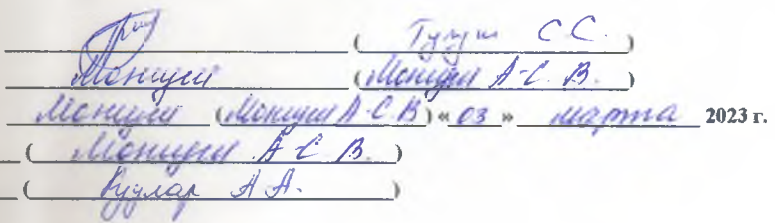 ( Тулуш С.С. )
Монгуш (Монгуш А-С. В. )
Монгуш (Монгуш А-С В) « 03 » марта 2023 г.
( Монгуш А-С В. )
( Куулар А А. )